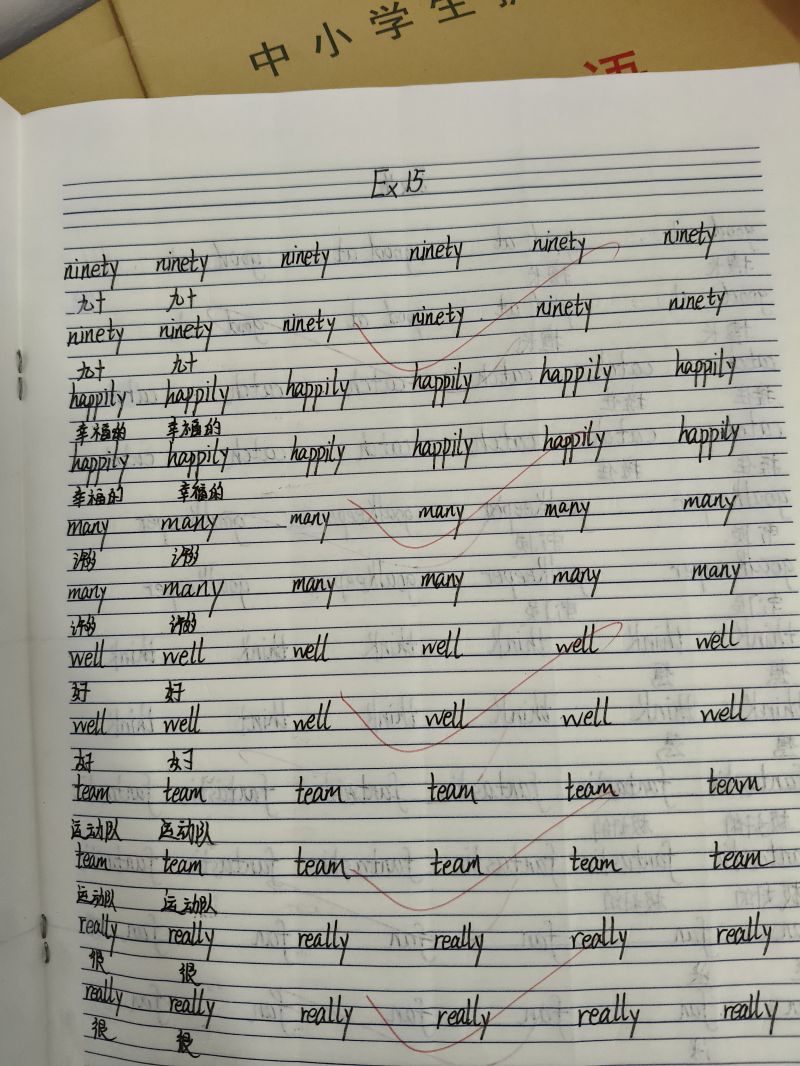 中小学生
语
Ex 15
ninety ninety ninety ninety ninety ninety
九十 九十
ninety ninety ninety ninety ninety ninety
九十 九十
happily happily happily happily happily happily
幸福的 幸福的
happily happily happily happily happily happily
幸福的 幸福的
many many many many many many
许多的 许多的
many many many many many many
许多的 许多的
well well well well well well
好 好
well well well well well well
好 好
team team team team team team
运动队 运动队
team team team team team team
运动队 运动队
really really really really really really
很 很
really really really really really really
很 很